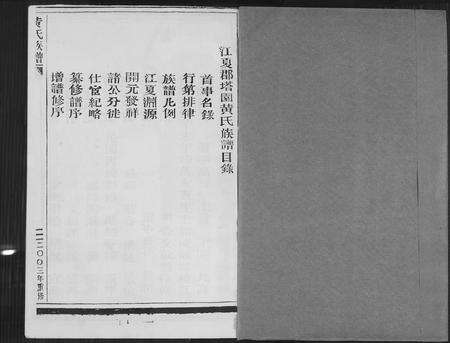 江夏郡塔園黄氏族譜目錄
首事名錄
行第排律
族譜凡例
江夏淵源
開元發祥
諸公分徙
仕宦紀略
纂修譜序
增譜修序
黄氏族譜
二〇〇三年重修
一